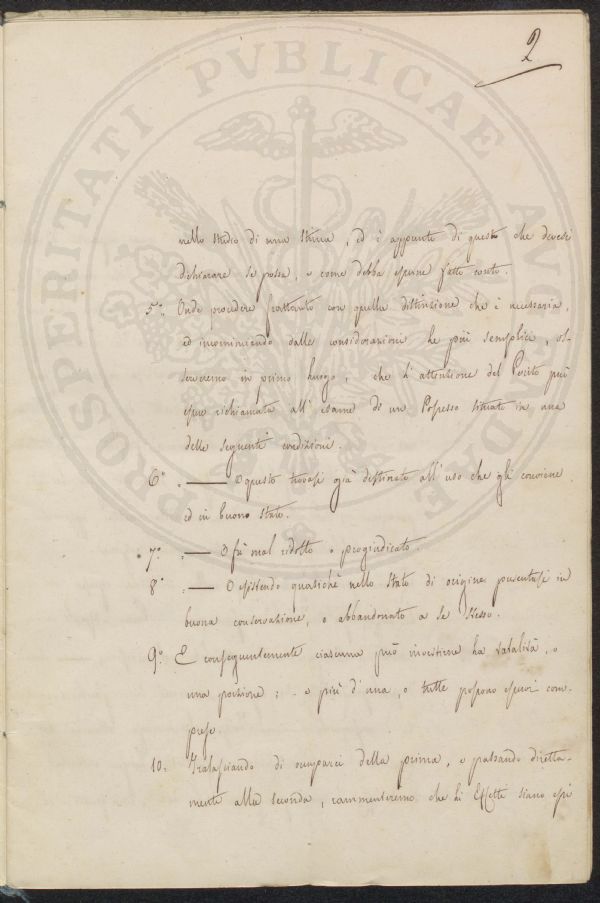 2
PROSPERITATI PVBLICAE AVGENDAE
nello studio di una Stima, ed è appunto di questo che devesi
dichiarare se possa, o come debba esserne fatto conto.
5.° Onde procedere frattanto con quella distinzione che è necessaria,
ed incominciando dalle considerazioni le più semplici, os-
serveremo in primo luogo, che l'attenzione del Perito può
esser richiamata all'esame di un Possesso situato in una
delle seguenti condizioni.
6° — O questo trovasi già destinato all'uso che gli conviene
ed in buono stato.
7.° — O fù mal ridotto o progiudicato.
8° — O esistendo quasichè nello stato di origine presentasi in
buona conservazione, o abbandonato a se stesso.
9.° E conseguentemente ciascuna può investirne la totalità, o
una porzione; o più d'una, o tutte possono esservi com-
prese.
10. Tralasciando di occuparci della prima, e passando diretta-
mente alla seconda, rammenteremo che li Effetti siano essi